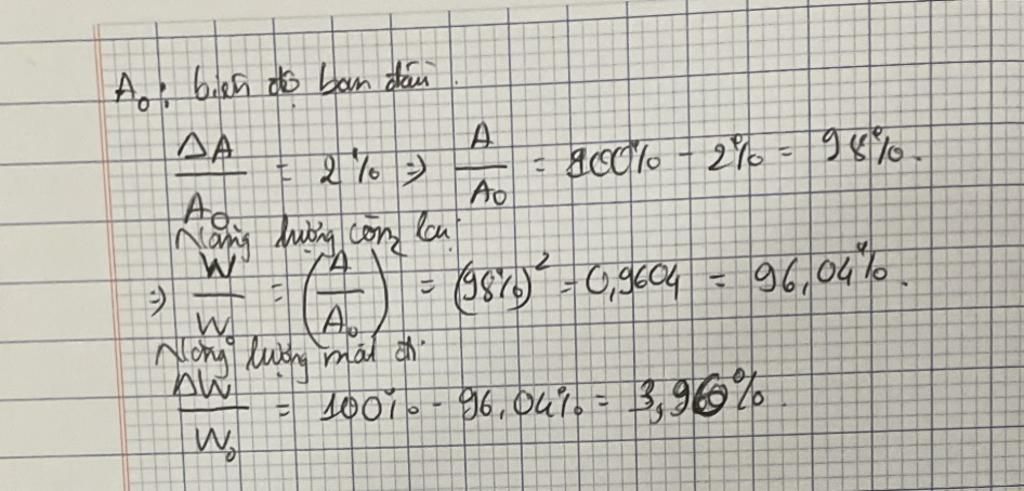 A₀: biên độ ban đầu.
ΔA/A₀ = 2% ⇒ A/A₀ = 100% - 2% = 98%.
Năng lượng còn lại:
⇒ W/W₀ = (A/A₀) = (98%)² = 0,9604 = 96,04%.
Năng lượng mất đi.
ΔW/W₀ = 100% - 96,04% = 3,960%.